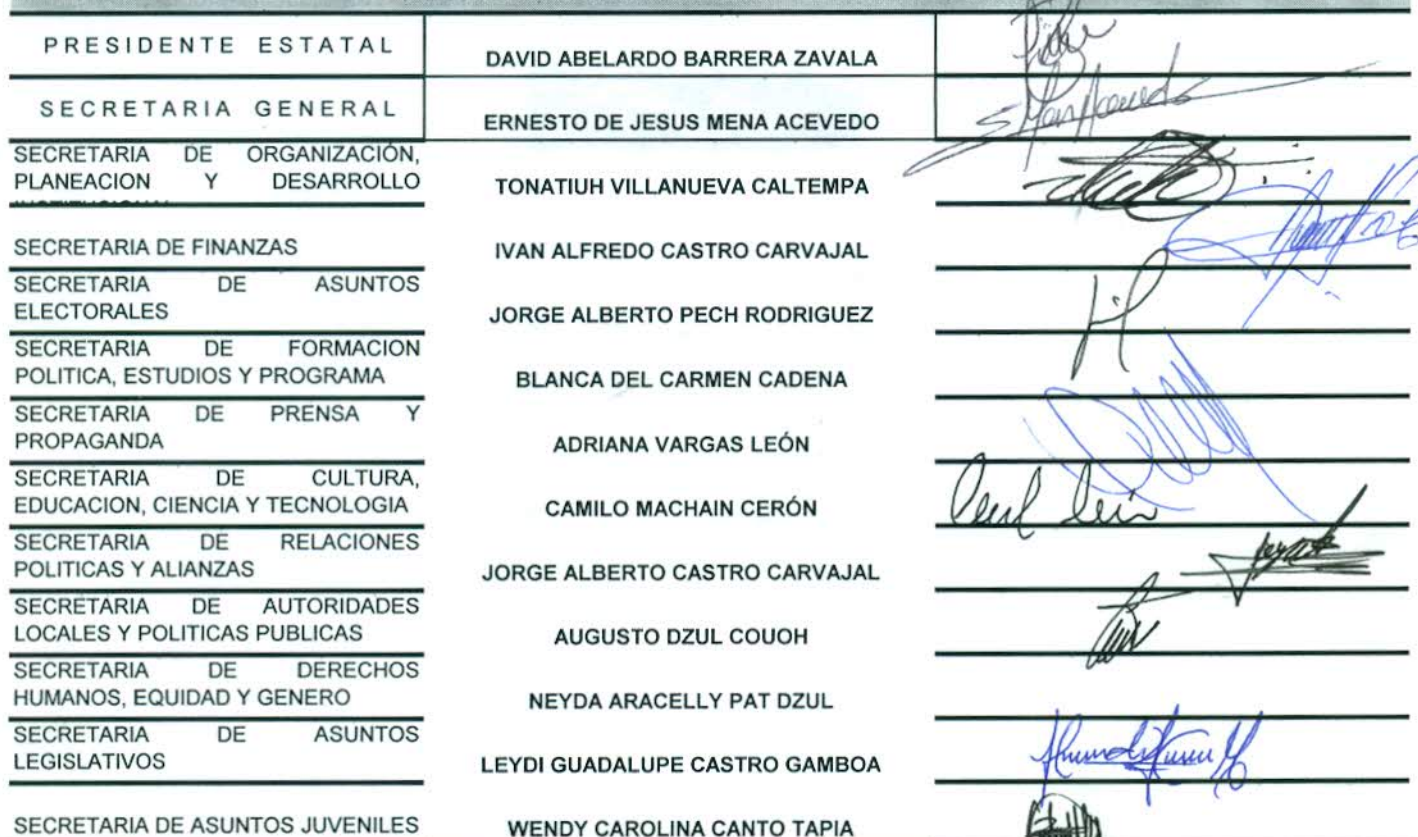 PRESIDENTE ESTATAL
DAVID ABELARDO BARRERA ZAVALA
SECRETARIA GENERAL
ERNESTO DE JESUS MENA ACEVEDO
SECRETARIA DE ORGANIZACIÓN,
PLANEACION Y DESARROLLO
TONATIUH VILLANUEVA CALTEMPA
SECRETARIA DE FINANZAS
IVAN ALFREDO CASTRO CARVAJAL
SECRETARIA DE ASUNTOS
ELECTORALES
JORGE ALBERTO PECH RODRIGUEZ
SECRETARIA DE FORMACION
POLITICA, ESTUDIOS Y PROGRAMA
BLANCA DEL CARMEN CADENA
SECRETARIA DE PRENSA Y
PROPAGANDA
ADRIANA VARGAS LEÓN
SECRETARIA DE CULTURA,
EDUCACION, CIENCIA Y TECNOLOGIA
CAMILO MACHAIN CERÓN
SECRETARIA DE RELACIONES
POLITICAS Y ALIANZAS
JORGE ALBERTO CASTRO CARVAJAL
SECRETARIA DE AUTORIDADES
LOCALES Y POLITICAS PUBLICAS
AUGUSTO DZUL COUOH
SECRETARIA DE DERECHOS
HUMANOS, EQUIDAD Y GENERO
NEYDA ARACELLY PAT DZUL
SECRETARIA DE ASUNTOS
LEGISLATIVOS
LEYDI GUADALUPE CASTRO GAMBOA
SECRETARIA DE ASUNTOS JUVENILES
WENDY CAROLINA CANTO TAPIA